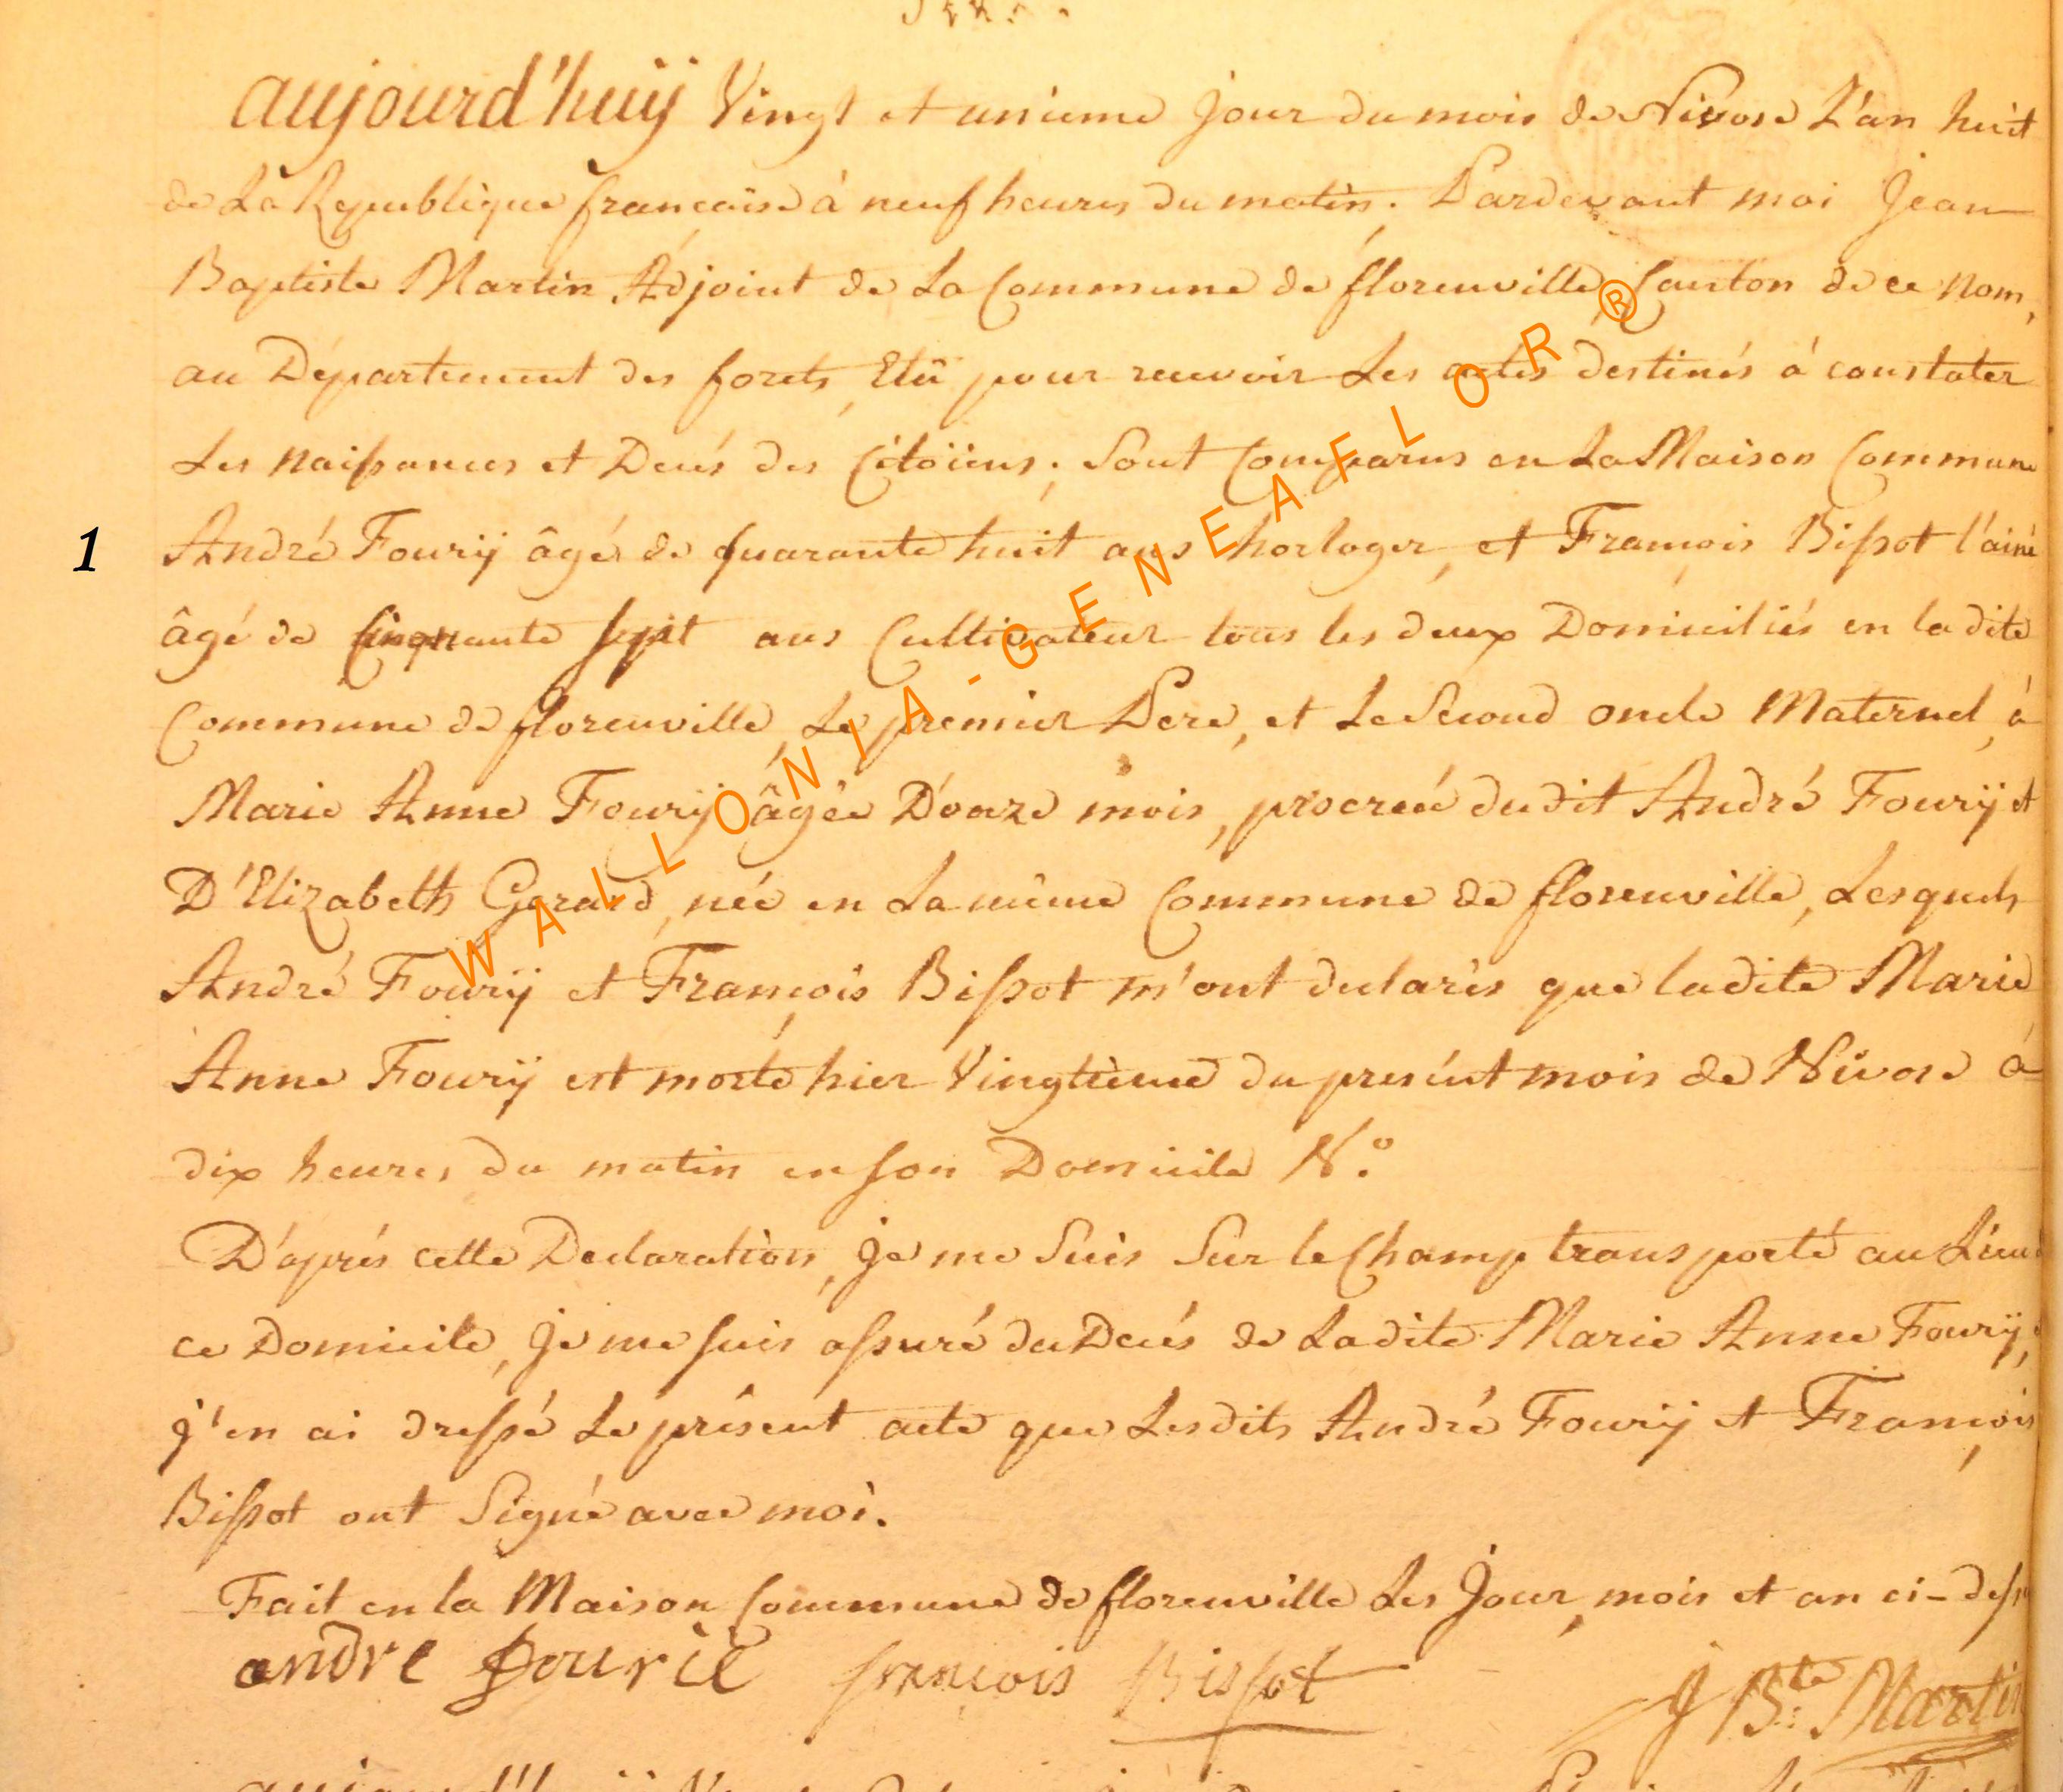 aujourd'huÿ Vingt et unieme jour du mois de Nivose L'an huit
de La Republique francaise à neuf heures du matin. Pardevant moi Jean
Baptiste Martin Adjoint de La Commune de florenville, Canton de ce nom,
au Département des forets, Elû pour recevoir Les actes destinés à constater
Les naissances et Decés des Citoïens; Sont Comparus en La Maison Commune
1 André Fourÿ âgé de quarante huit ans horloger, et François Bissot l'ainé
âgé de Cinquante sept ans Cultivateur tous les deux Domiciliés en la dite
Commune de florenville, Le premier Pere, et Le Second oncle Maternel, à
Marie Anne Fourÿ âgée D'onze mois, procreée dudit André Fourÿ et
D'Elizabeth Gerard, née en La même Commune de florenville, Lesquels
André Fourÿ et François Bissot m'ont declarés que ladite Marie
Anne Fourÿ est morte hier Vingtieme du present mois de Nivose à
dix heures du matin en son Domicile N.º
D'aprés cette Declaration, je me Suis Sur le Champ transporté au Lieu
ce Domicile, je me suis assuré du Decés de Ladite Marie Anne Fourÿ,
j'en ai dressé Le présent acte que Lesdits André Fourÿ et François
Bissot ont Signé avec moi.
Fait en la Maison Commune de florenville Les Jour, mois et an ci-dess
andre fourie françois Bissot J B.te Martin
WALLONIA-GENEAFLOR®